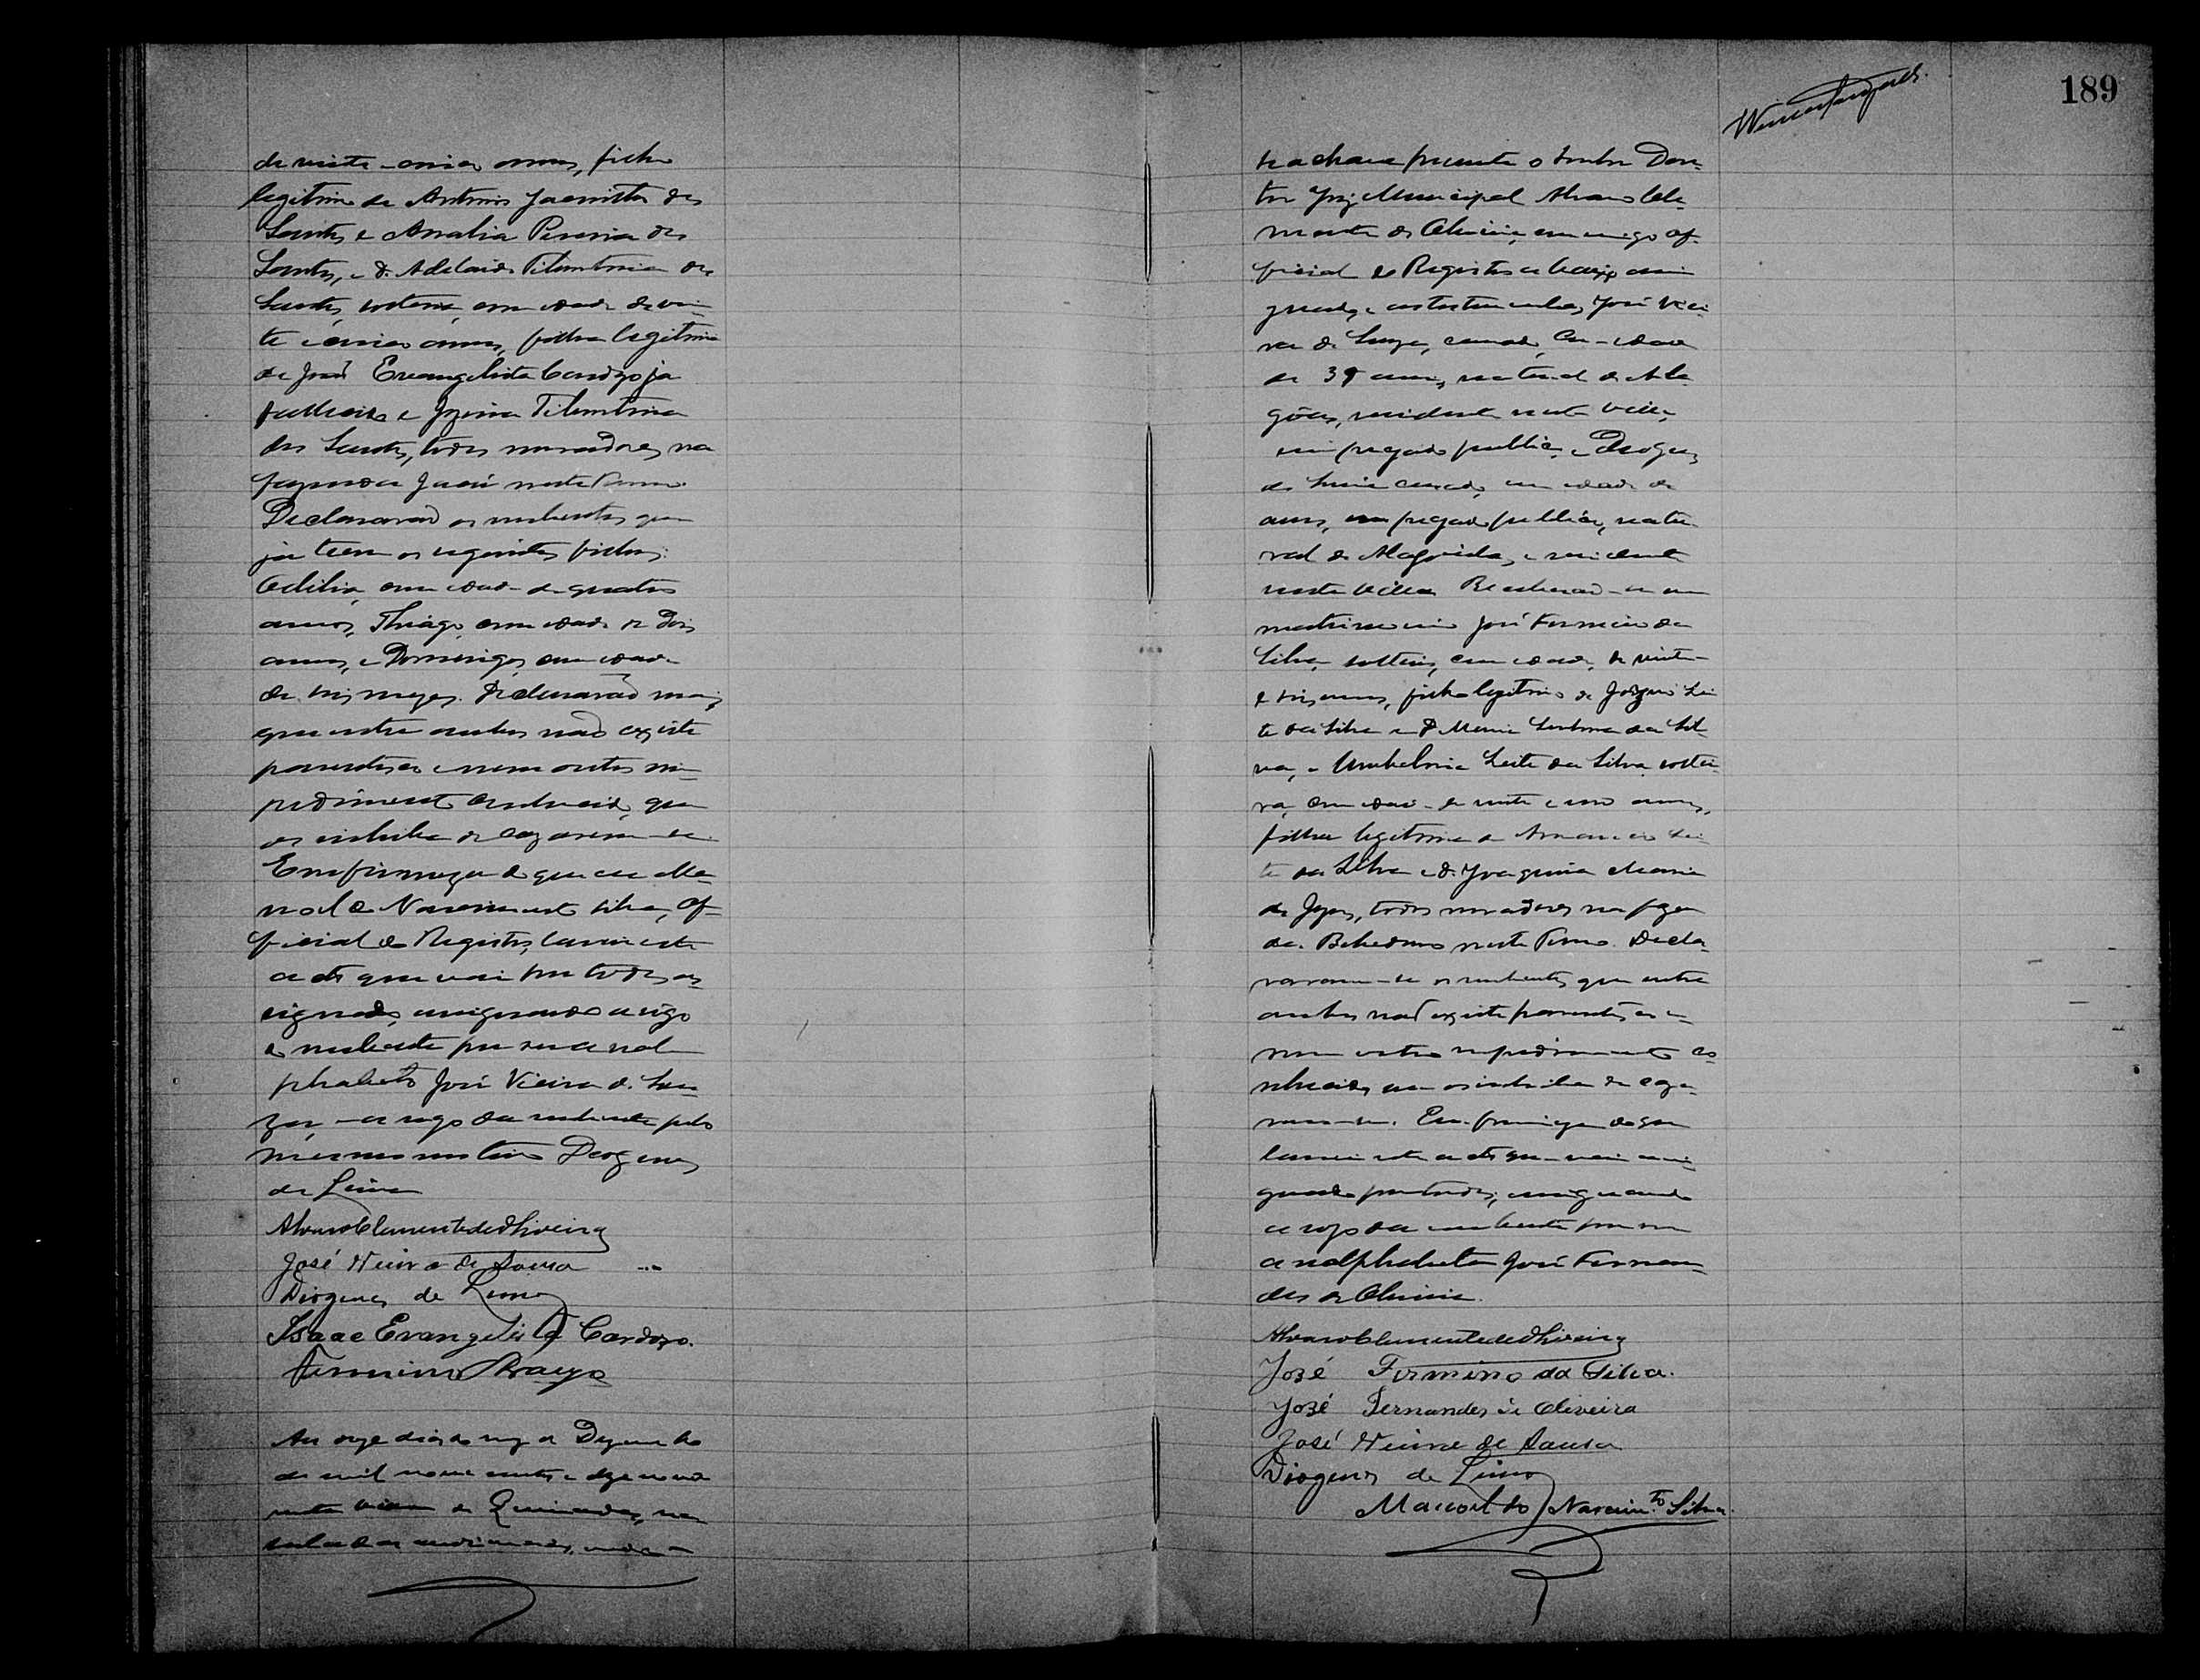 de vinte cinco annos, filho
legitimo de Antonio Jacintho dos
Santos e Amalia Pereira dos
Santos, e D. Adelaide Filintrina dos
Santos, solteira, com edade de vin-
te e cinco annos, filha legitima
de José Evangelista Cardozo ja
fallecido e Filintrina
dos Santos, todos moradores na
fazenda Jacú neste Termo.
Declararão os nubentes que
ja teem os seguintes filhos:
Odilia, com edade de quatro
annos, Thiago, com edade de dois
annos, e Domingos, com edade
de tres mezes. Declararão mais
que entre ambos não existe
parentesco e nem outro im-
pedimento conhecido, que
os inhiba de cazarem-se.
Em firmeza de que eu Ma-
noel do Nascimento Silva, Of-
ficial do Registro, lavrei este
acto que vai por todos as-
signado, assignando a rogo
do nubente por ser anal-
phabeto José Vieira de Sou-
za, e a rogo da nubente pelo
mesmo motivo Diogenes
de Lima
Alvaro Clemente de Oliveira
José Vieira de Souza
Diogenes de Lima
Isaac Evangelista Cardozo.
Firmino Araujo
Aos onze dias do mez de Dezembro
de mil nove centos e dezenove
nesta villa de Queimadas, na
sala das audiencias, onde
189
se achava presente o Senhor Dou-
tor Juiz Municipal Alvaro Cle-
mente de Oliveira, commigo Of-
ficial do Registro abaixo assi-
gnado, e as testemunhas, José Viei-
ra de Souza, casado, com edade
de annos, natural de Ala-
gôas, residente nesta villa,
empregado publico, e Diogenes
de Lima casado, com edade de
annos, empregado publico, natu-
ral de Alagoinhas, e residente
nesta villa. Receberão-se em
matrimonio José Firmino da
Silva, solteiro, com edade de vinte
e tres annos, filho legitimo de Lei-
te da Silva e D. Maria da Sil-
va, e Umbelina Leite da Silva, soltei-
ra, com edade de vinte e um annos,
filha legitima de Amancio Lei-
te da Silva e D. Joaquina Maria
de Jezus, todos moradores na fazen-
da neste Termo. Decla-
raram-se os nubentes que entre
ambos não existe parentesco e
nem outro impedimento co-
nhecido que os inhiba de caza-
rem-se. Em firmeza do que
lavrei este acto que vai assi-
gnado por todos, assignando
a rogo da nubente por ser
analphabeta José Fernan-
des de Oliveira.
Alvaro Clemente de Oliveira
José Firmino da Silva.
José Fernandes de Oliveira
José Vieira de Souza
Diogenes de Lima
Manoel do Nascim.to Silva.